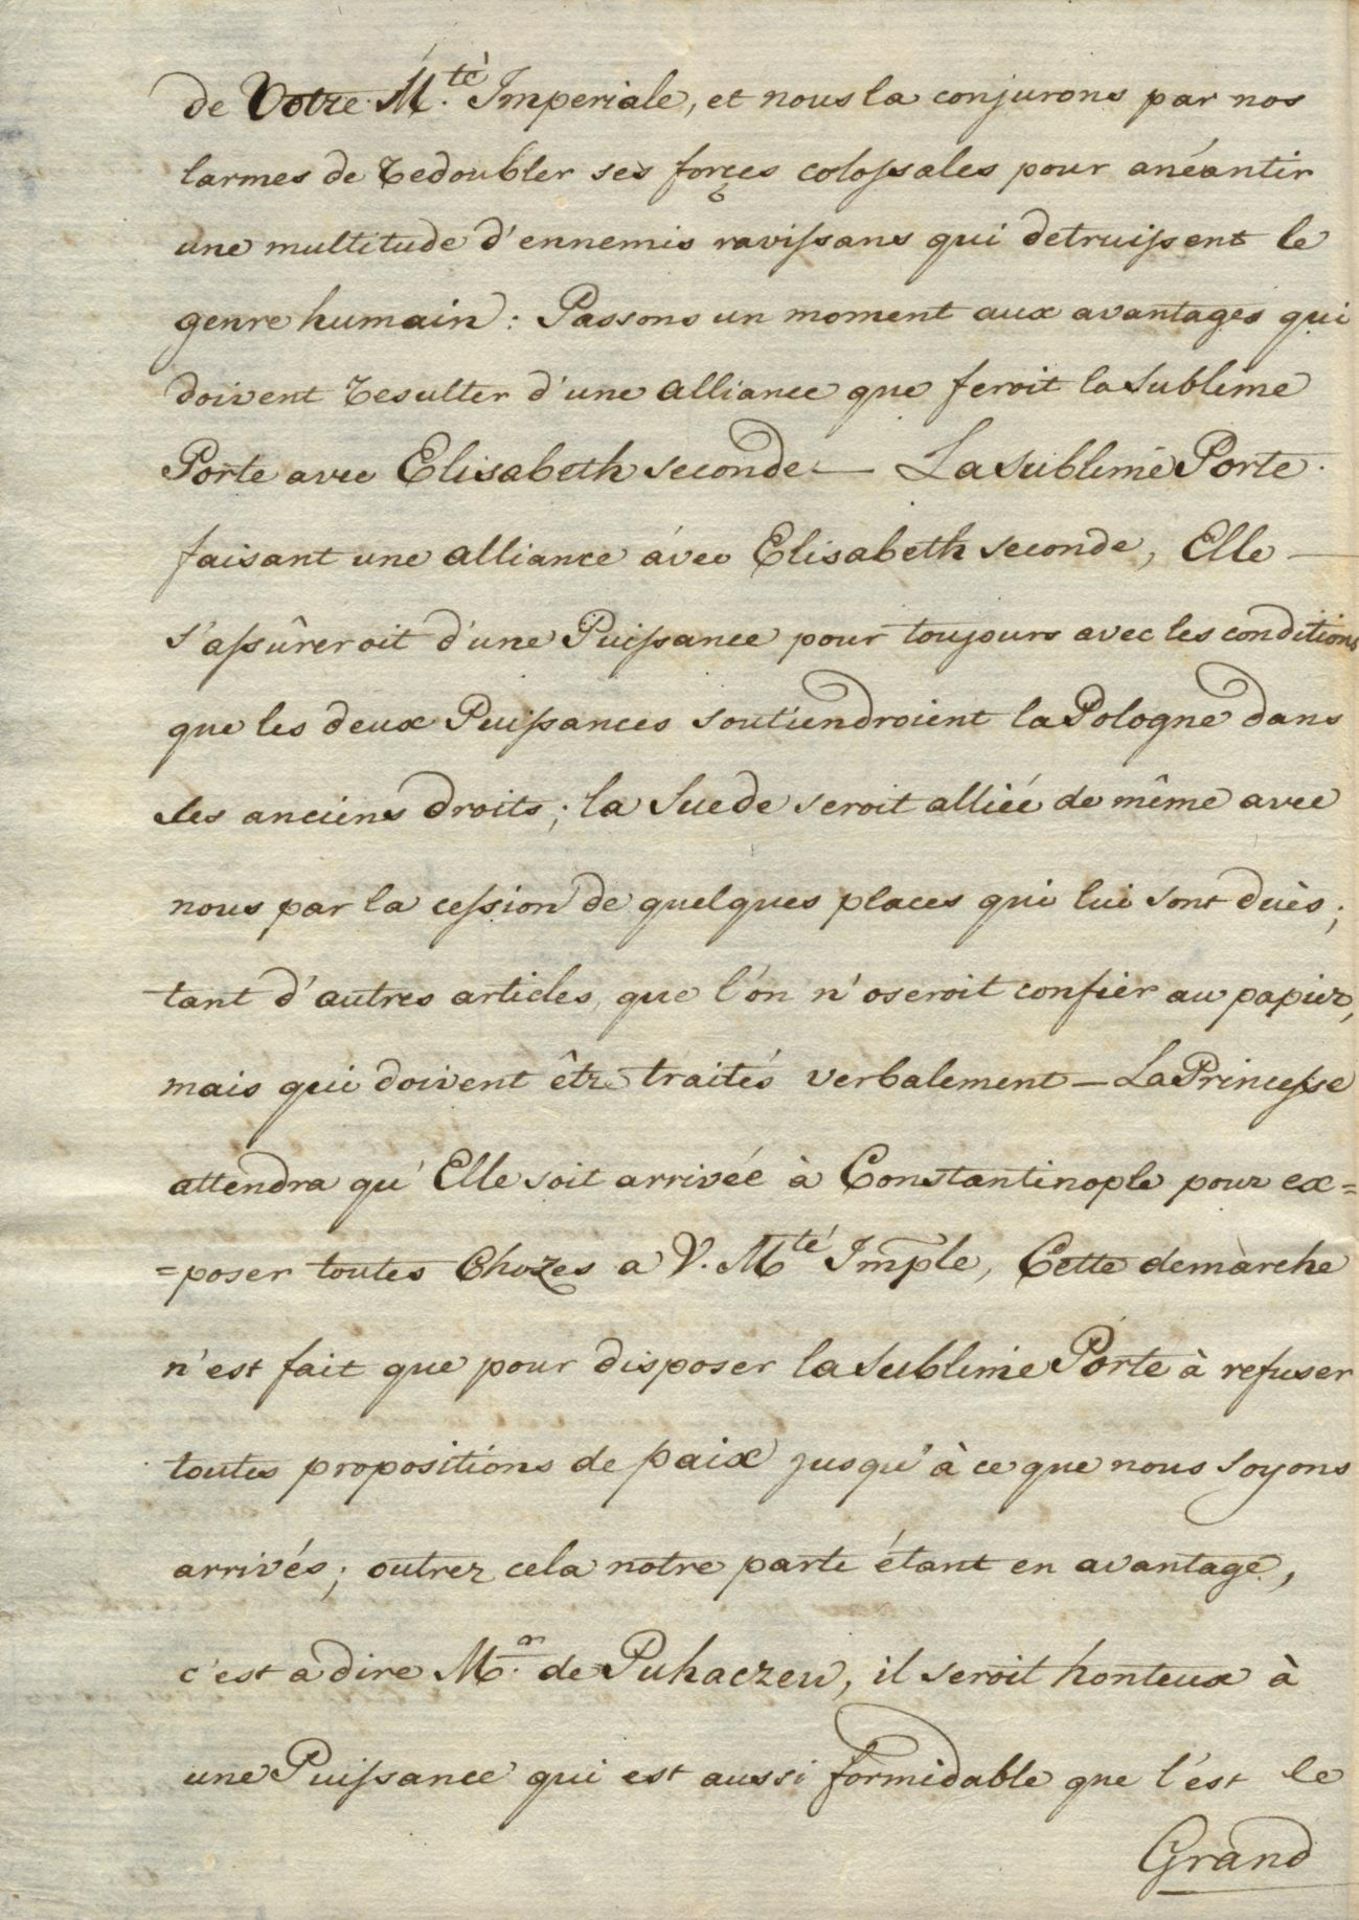 de Votre M.té Imperiale, et nous la conjurons par nos
larmes de redoubler ses forçes colossales pour anéantir
une multitude d'ennemis ravissans qui detruissent le
genre humain : Passons un moment aux avantages qui
doivent resulter d'une alliance que feroit la Sublime
Porte avec Elisabeth seconde — La Sublime Porte
faisant une alliance avec Elisabeth seconde, Elle —
s'assûreroit d'une Puissance pour toujours avec les conditions
que les deux Puissances soutiendroient la Pologne dans
ses anciens droits ; la Suede seroit alliée de même avec
nous par la cession de quelques places qui lui sont duès ;
tant d'autres articles, que l'on n'oseroit confier au papier,
mais qui doivent être traités verbalement — La Princesse
attendra qu'Elle soit arrivée à Constantinople pour ex=
=poser toutes Chozes a V. Mté Imple, Cette demarche
n'est fait que pour disposer la Sublime Porte à refuser
toutes propositions de paix jusqu'à ce que nous soyons
arrivés ; outrez cela notre parte étant en avantage,
c'est a dire M.r de Puhaczew, il seroit honteux à
une Puissance qui est aussi formidable que l'est le
Grand